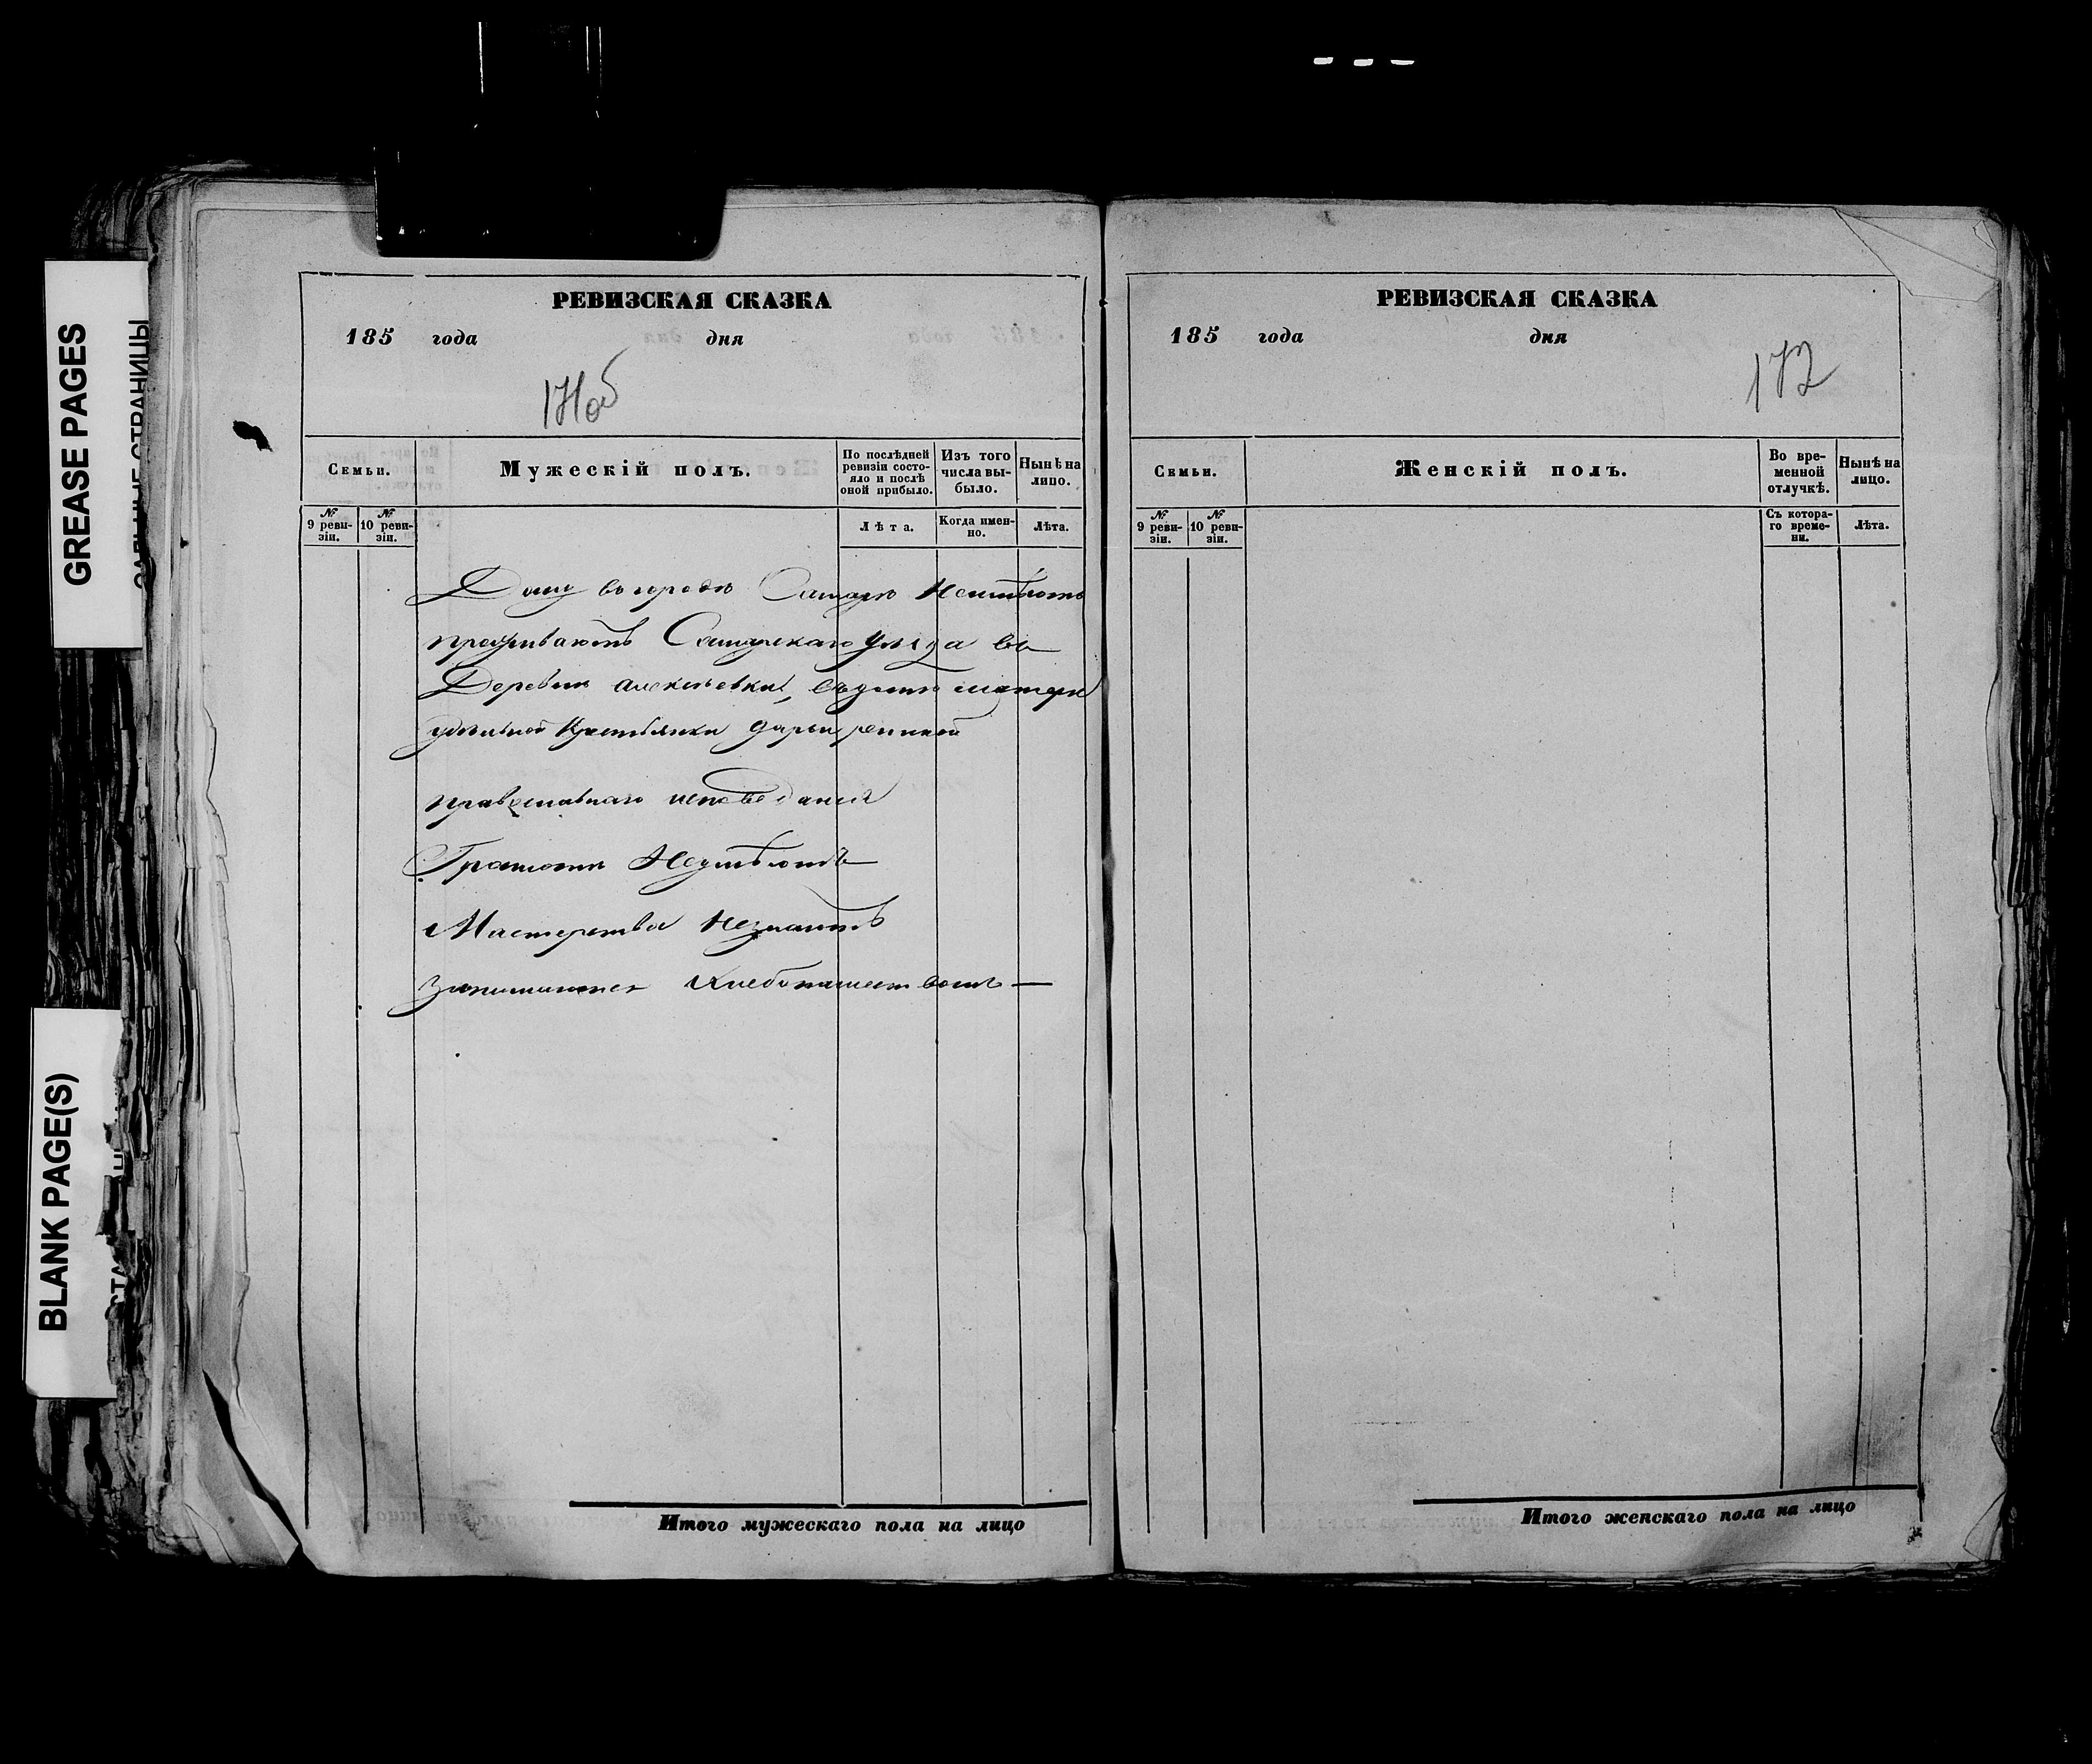 GREASE PAGES
BLANK PAGE(S)
РЕВИЗСКАЯ СКАЗКА
185 года дня
171об
Семьи.
Мужескій полъ.
По послѣдней ревизіи состояло и послѣ оной прибыло.
Изъ того числа выбыло.
Нынѣ на лицо.
№ 9 ревизіи.
№ 10 ревизіи.
Лѣта.
Когда именно.
Лѣта.
Дому въ городѣ Самарѣ Неимѣютъ
проживаютъ Самарскаго уѣзда въ
Деревнѣ алексѣевки, въ домѣ матери
удѣльной Крестьянки дарьи
православнаго исповеданія
Грамоти Неумѣютъ
Мастерства Незнаютъ
занимаются Хлебопашествомъ —
Итого мужескаго пола на лицо
РЕВИЗСКАЯ СКАЗКА
185 года дня
172
Семьи.
Женскій полъ.
Во временной отлучкѣ.
Нынѣ на лицо.
№ 9 ревизіи.
№ 10 ревизіи.
Съ котораго времени.
Лѣта.
Итого женскаго пола на лицо